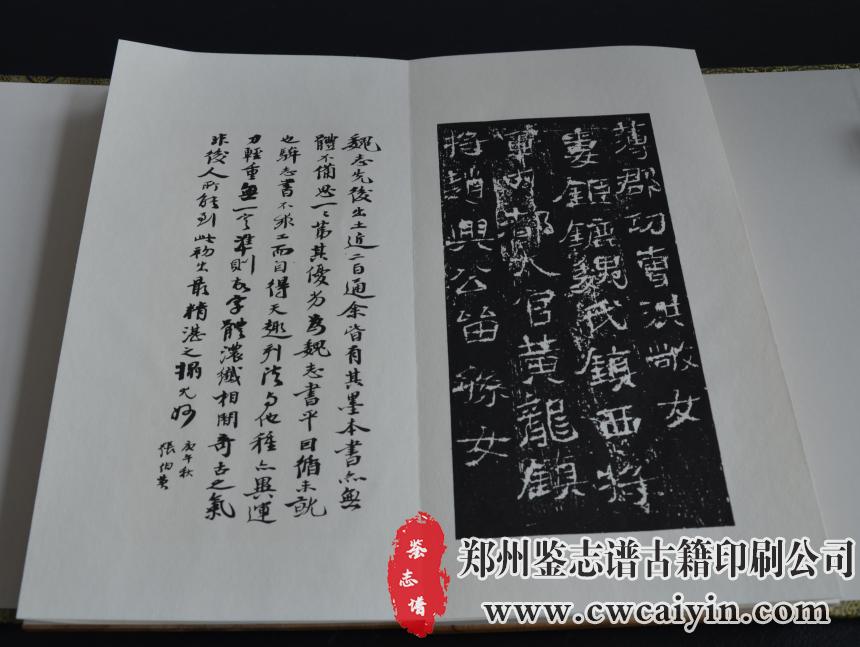 薄郡功曹洪敞女
妻姬鐀魏氏鎮西將
軍內都大官黃龍鎮
將趙興公苗孫女
魏志先後出土近二百通余皆有其墨本書亦無
體不備思一一第其優劣為魏志書平因循未就
也 志書不求工而自得天趣 法與他種亦異運
刀輕重無一定準則故字體濃纖相間奇古之氣
非後人所能到此初出最精湛之搨尤好
庚午秋
張伯英
鉴志谱
郑州鉴志谱古籍印刷公司
www.cwcaiyin.com